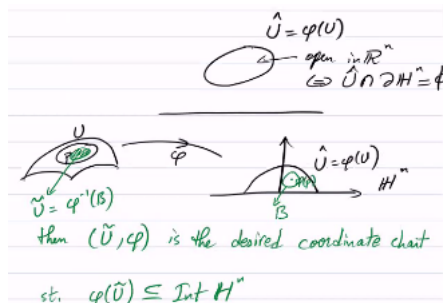 Û = φ(U)
open in ℝⁿ
⇔ Û ∩ ∂ℍⁿ = ϕ
U
φ
Û = φ(U)
ℍⁿ
Ũ = φ⁻¹(B)
B
then (Ũ, φ) is the desired coordinate chart
st. φ(Ũ) ⊆ Int ℍⁿ